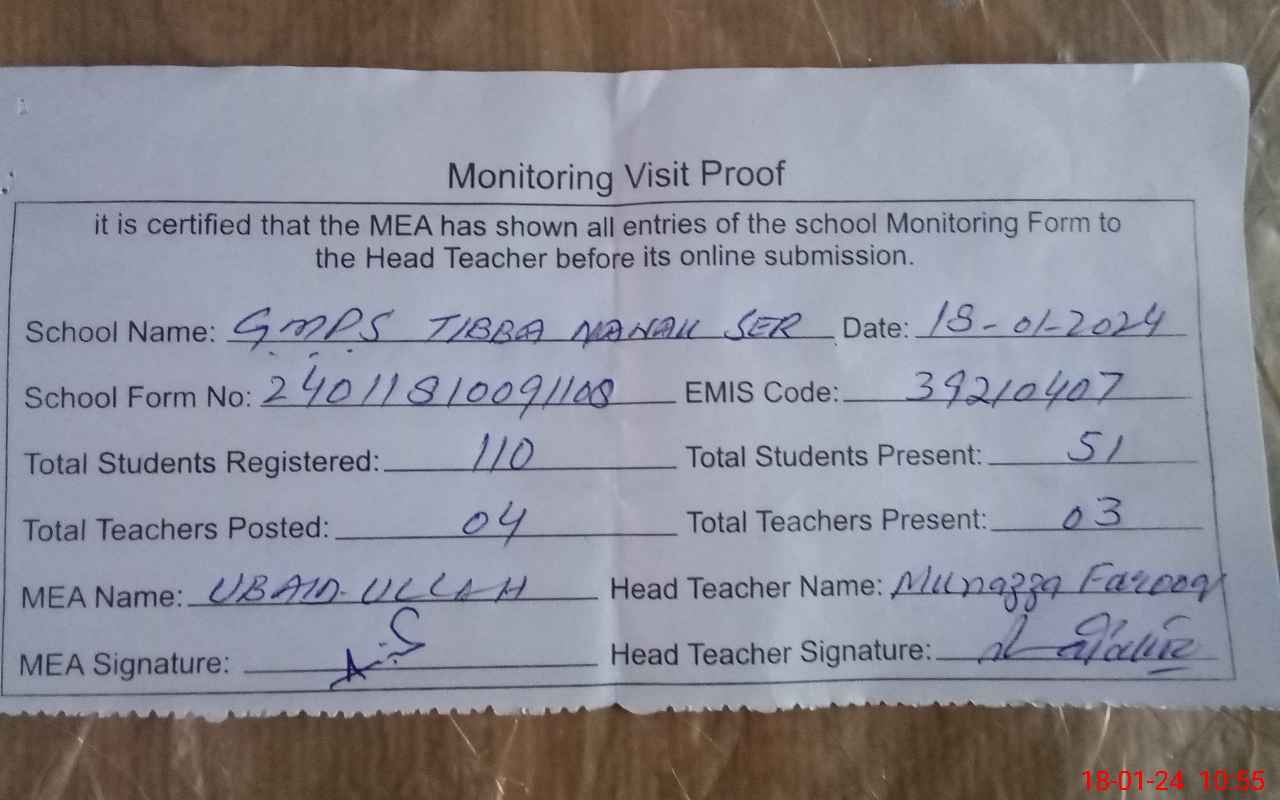 Monitoring Visit Proof
it is certified that the MEA has shown all entries of the school Monitoring Form to
the Head Teacher before its online submission.
School Name: GMPS TIBBA NANAK SER Date: 18-01-2024
School Form No: 24011810091108 EMIS Code: 39210407
Total Students Registered: 110 Total Students Present: 51
Total Teachers Posted: 04 Total Teachers Present: 03
MEA Name: UBAID-ULLAH Head Teacher Name: Munazza Farooq
MEA Signature: Head Teacher Signature:
18-01-24 10:55